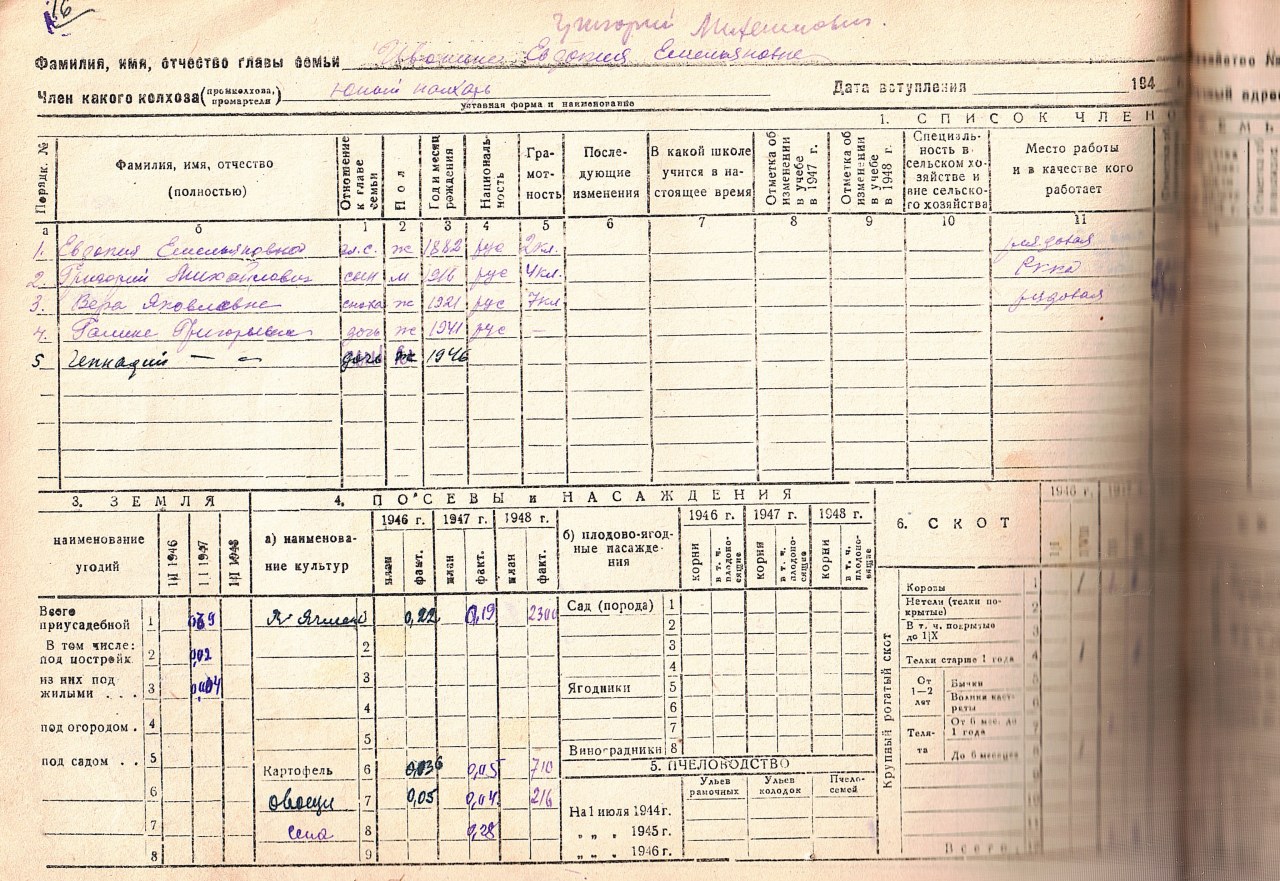 16
Григорий Михайлович.
Фамилия, имя, отчество главы семьи Евдокия Емельяновна
Член какого колхоза (промколхоза, промартели) Юный пахарь Дата вступления 194
уставная форма и наименование
1. СПИСОК ЧЛЕНО
Порядк. № Фамилия, имя, отчество (полностью) Отношение к главе семьи Пол Год и месяц рождения Националь-ность Гра-мот-ность После-дующие изменения В какой школе учится в на-стоящее время Отметка об изменении в учебе в 1947 г. Отметка об изменении в учебе в 1948 г. Специаль-ность в сельском хо-зяйстве и вне сельско-го хозяйства Место работы и в качестве кого работает
а б 1 2 3 4 5 6 7 8 9 10 11
1. Евдокия Емельяновна гл.с. ж 1882 рус 2кл. рядовая
2. Григорий Михайлович сын м 1916 рус 4кл. Ркка
3. Вера Яковлевна сноха ж 1921 рус 7кл рядовая
4. Галина Григорьевна дочь ж 1941 рус —
5 Геннадий — 〃 — 1946
3. ЗЕМЛЯ 4. ПОСЕВЫ и НАСАЖДЕНИЯ
наименование угодий 1|I 1946 1|I 1947 1|I 1948
а) наименова-ние культур 1946 г. 1947 г. 1948 г.
план факт. план факт. план факт.
б) плодово-ягод-ные насажде-ния 1946 г. 1947 г. 1948 г.
корни в т. ч. плодоно-сящие корни в т. ч. плодоно-сящие корни в т. ч. плодоно-сящие
6. СКОТ 1946 г.
Всего приусадебной 1
В том числе: под постройк. 2 0,02
из них под жилыми . . . 3
под огородом . 4
под садом . . 5
6
7
8
Ячмень 1 0,22 0,19 2300
2
3
4
5
Картофель 6 0,036 0,05 710
Овощи 7 0,05 0,04 216
Сена 8 0,28
9
Сад (порода) 1
2
3
4
Ягодники 5
6
7
Виноградники 8
5. ПЧЕЛОВОДСТВО
Ульев рамочных Ульев колодок Пчело-семей
На 1 июля 1944 г.
„ „ „ 1945 г.
„ „ „ 1946 г.
Крупный рогатый скот
Коровы 1
Нетели (телки по-крытые) 2
В т. ч. покрытые до 1|X 3
Телки старше 1 года 4
От 1—2 лет Бычки
Волики каст-раты
Теля-та От 6 мес. до 1 года
До 6 месяцев
Всего